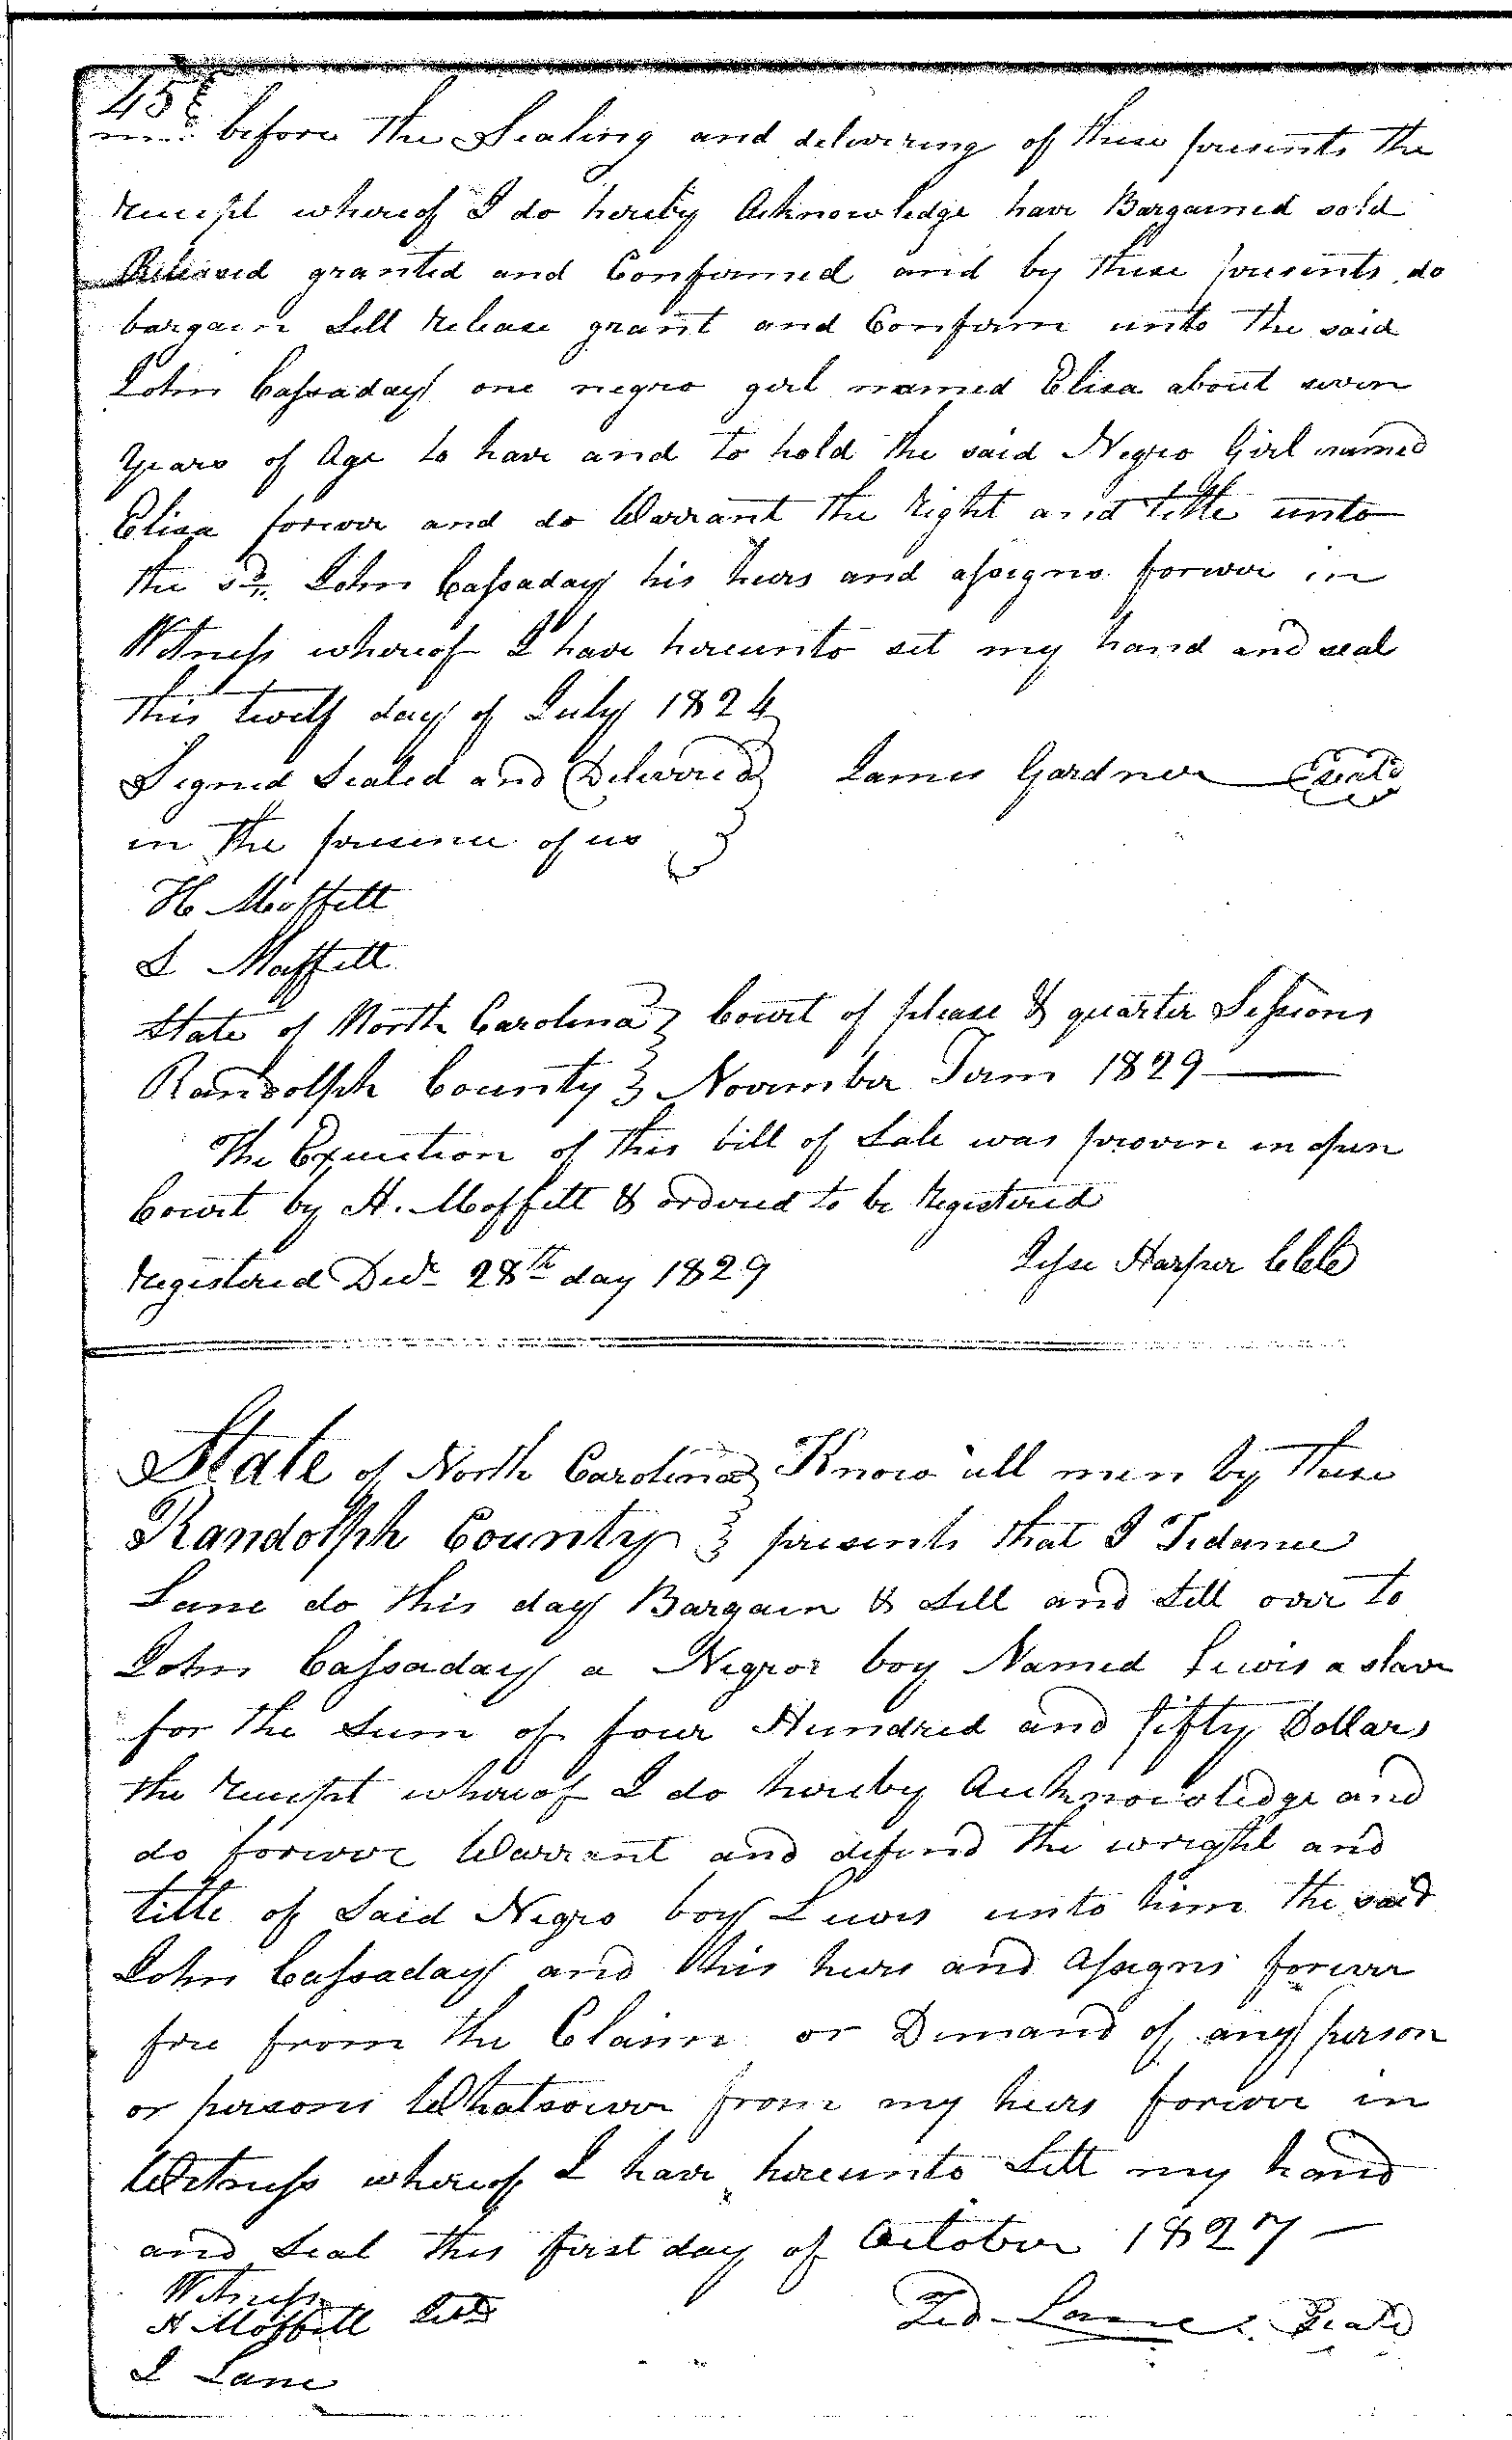 458
before the Sealing and delivering of these presents the
receipt whereof I do hereby Acknowledge have Bargained sold
Released granted and Confirmed and by these presents do
bargain Sell release grant and Confirm unto the said
John Cassaday one negro girl named Elisa about seven
Years of Age to have and to hold the said Negro Girl named
Elisa forever and do Warrant the right and title unto
the sd. John Cassaday his heirs and assigns forever in
Witness whereof I have hereunto set my hand and seal
this twelf day of July 1824
Signed Sealed and Delivered } James Gardner (Seal)
in the presence of us }
H Moffett
J Moffett
State of North Carolina } Court of please & quarter Sessions
Randolph County } November Term 1829
The Execution of this bill of Sale was proven in open
Court by H. Moffett & ordered to be registered
registered Decr 28th day 1829 Jesse Harper CCC
State of North Carolina } Know all men by these
Randolph County } presents that I Tidance
Lane do this day Bargain & Sell and Sell over to
John Cassaday a Negroe boy Named Lewis a slave
for the Sum of four Hundred and fifty Dollars
the receipt whereof I do hereby Acknowledge and
do forever Warrant and defend the wright and
title of Said Negro boy Lewis unto him the said
John Cassaday and his heirs and Assigns forever
free from the Claim or Demand of any person
or persons Whatsoever from my heirs forever in
Witness whereof I have hereunto Sett my hand
and Seal this first day of October 1827
Witness Tid Lane Seal
H Moffett
J Lane